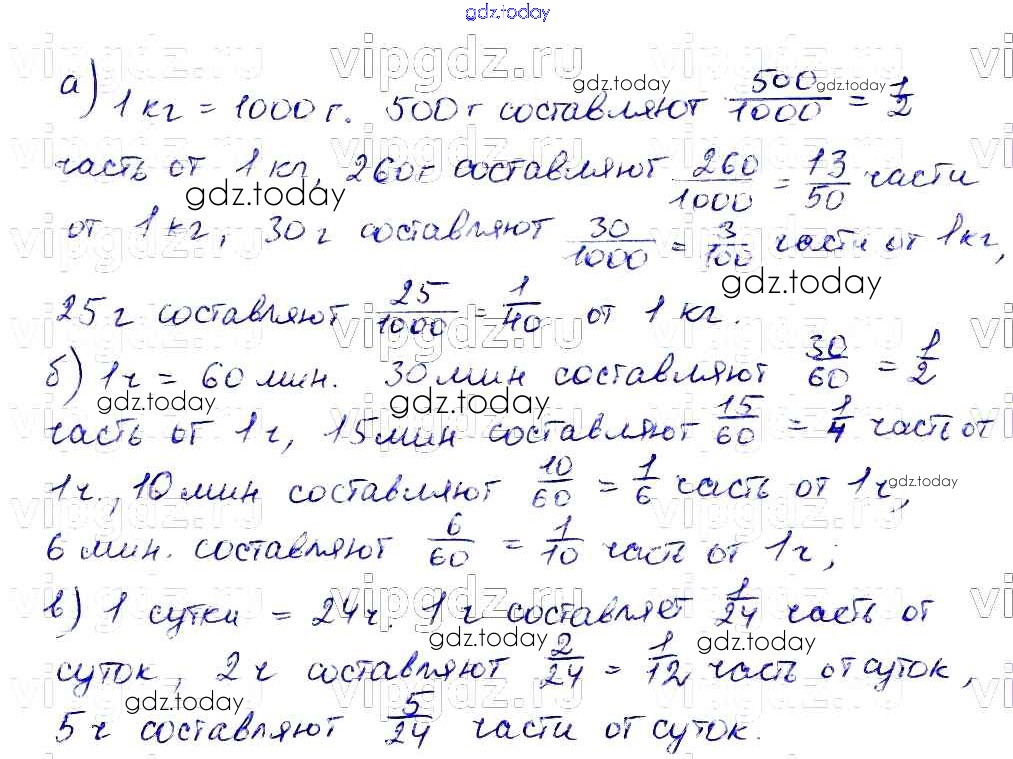 gdz.today
а) 1 кг = 1000 г. 500 г составляют 500/1000 = 1/2
часть от 1 кг, 260 г составляют 260/1000 = 13/50 части
от 1 кг, 30 г составляют 30/1000 = 3/100 части от 1 кг,
25 г составляют 25/1000 = 1/40 от 1 кг.
б) 1 ч = 60 мин. 30 мин составляют 30/60 = 1/2
часть от 1 ч, 15 мин составляют 15/60 = 1/4 часть от
1 ч., 10 мин составляют 10/60 = 1/6 часть от 1 ч,
6 мин. составляют 6/60 = 1/10 часть от 1 ч;
в) 1 сутки = 24 ч. 1 ч составляет 1/24 часть от
суток, 2 ч составляют 2/24 = 1/12 часть от суток,
5 ч составляют 5/24 части от суток.